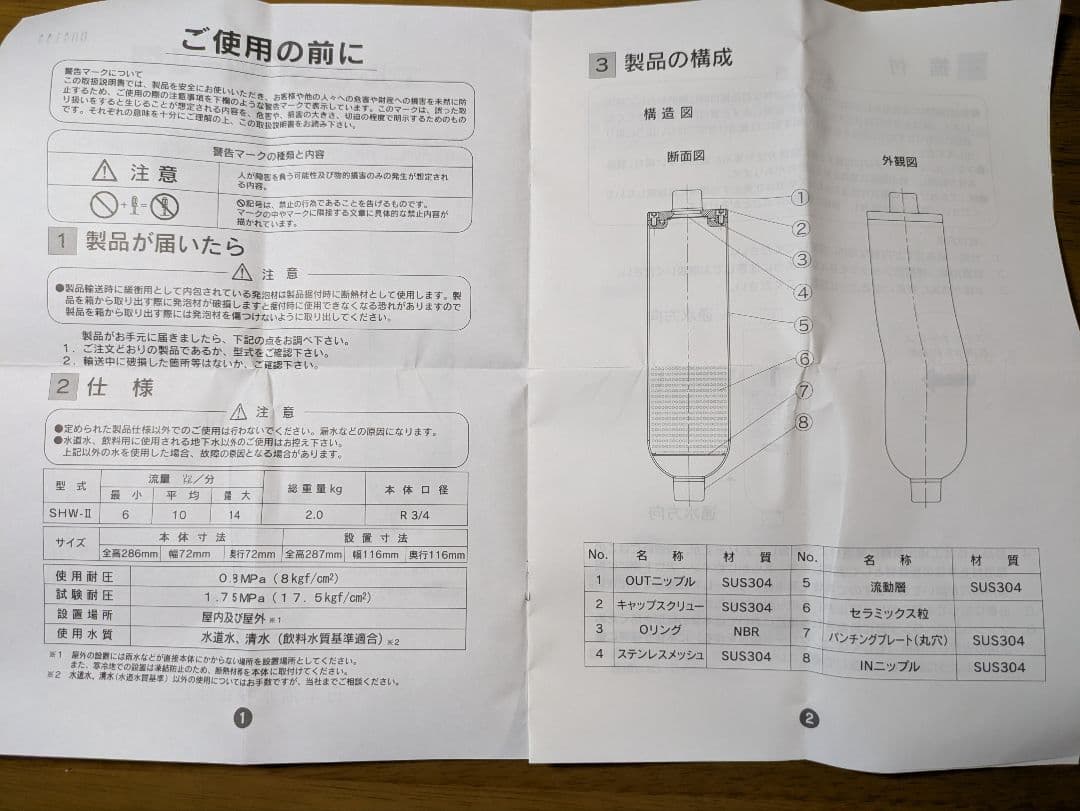 ご使用の前に
警告マークについて
この取扱説明書では、製品を安全にお使いいただき、お客様や他の人々への危害や財産への損害を未然に防
止するため、ご使用の際の注意事項を下欄のような警告マークで表示しています。このマークは、誤った取
り扱いをすると生じることが想定される内容を、危害や、損害の大きさ、切迫の程度で明示するためのもの
です。それぞれの意味を十分にご理解の上、この取扱説明書をお読み下さい。
警告マークの種類と内容
注意
人が障害を負う可能性及び物的損害のみの発生が想定され
る内容。
記号は、禁止の行為であることを告げるものです。
マークの中やマークに隣接する文章に具体的な禁止内容が
描かれています。
1 製品が届いたら
注 意
●製品輸送時に緩衝用として内包されている発泡材は製品据付時に断熱材として使用します。製
品を箱から取り出す際に発泡材が破損しますと据付時に使用できなくなる恐れがありますので
製品を箱から取り出す際には発泡材を傷つけないように取り出してください。
製品がお手元に届きましたら、下記の点をお調べ下さい。
1．ご注文どおりの製品であるか、型式をご確認下さい。
2．輸送中に破損した箇所等はないか、ご確認下さい。
2 仕 様
注 意
●定められた製品仕様以外でのご使用は行わないでください。漏水などの原因になります。
●水道水、飲料用に使用される地下水以外のご使用はお控え下さい。
上記以外の水を使用した場合、故障の原因となる場合があります。
型 式 流量 ㍑／分 総重量kg 本体口径
最 小 平 均 最 大
SHW-Ⅱ 6 10 14 2.0 R 3/4
サイズ 本体寸法 設置寸法
全高286mm 幅72mm 奥行72mm 全高287mm 幅116mm 奥行116mm
使用耐圧 0.8MPa（8kgf/cm²）
試験耐圧 1.75MPa（17.5kgf/cm²）
設置場所 屋内及び屋外※1
使用水質 水道水、清水（飲料水質基準適合）※2
※1 屋外の設置には雨水などが直接本体にかからない場所を設置場所としてください。
また、寒冷地での設置は凍結防止のため、断熱材等を本体に取付けてください。
※2 水道水、清水(水道水質基準）以外の使用についてはお手数ですが、当社までご相談ください。
1
3 製品の構成
構造図
断面図 外観図
①
②
③
④
⑤
⑥
⑦
⑧
No. 名 称 材 質 No. 名 称 材 質
1 OUTニップル SUS304 5 流動層 SUS304
2 キャップスクリュー SUS304 6 セラミックス粒
3 Oリング NBR 7 パンチングプレート(丸穴) SUS304
4 ステンレスメッシュ SUS304 8 INニップル SUS304
2